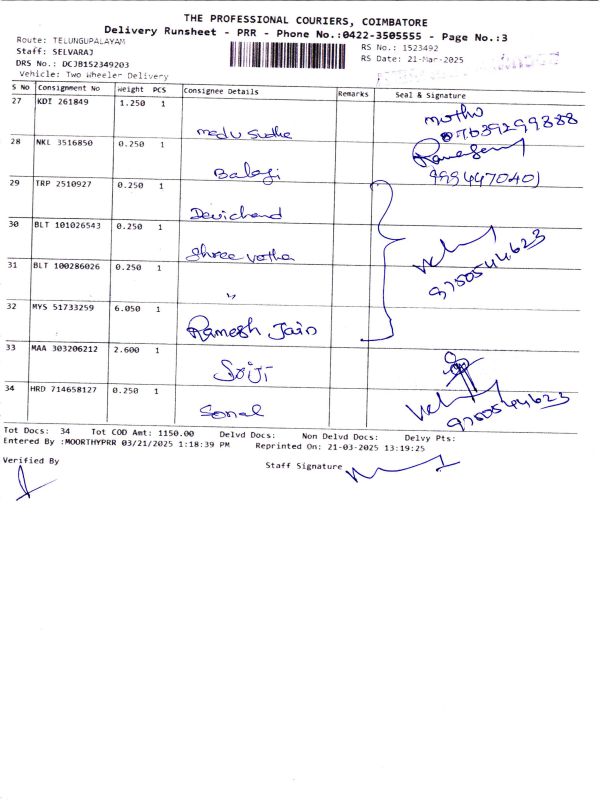 THE PROFESSIONAL COURIERS, COIMBATORE
Delivery Runsheet - PRR - Phone No.:0422-3505555 - Page No.:3
Route: TELUNGUPALAYAM
RS No.: 1523492
Staff: SELVARAJ
RS Date: 21-Mar-2025
DRS No.: DCJB152349203
Vehicle: Two Wheeler Delivery
S No Consignment No Weight PCS Consignee Details Remarks Seal & Signature
27 KDI 261849 1.250 1
28 NKL 3516850 0.250 1
Balaji
29 TRP 2510927 0.250 1
Devichand
30 BLT 101026543 0.250 1
Shree
9750544623
31 BLT 100286026 0.250 1
"
32 MYS 51733259 6.050 1
Ramesh Jain
33 MAA 303206212 2.600 1
34 HRD 714658127 0.250 1
Sonal
9750544623
Tot Docs: 34 Tot COD Amt: 1150.00 Delvd Docs: Non Delvd Docs: Delvy Pts:
Entered By :MOORTHYPRR 03/21/2025 1:18:39 PM Reprinted On: 21-03-2025 13:19:25
Verified By
Staff Signature